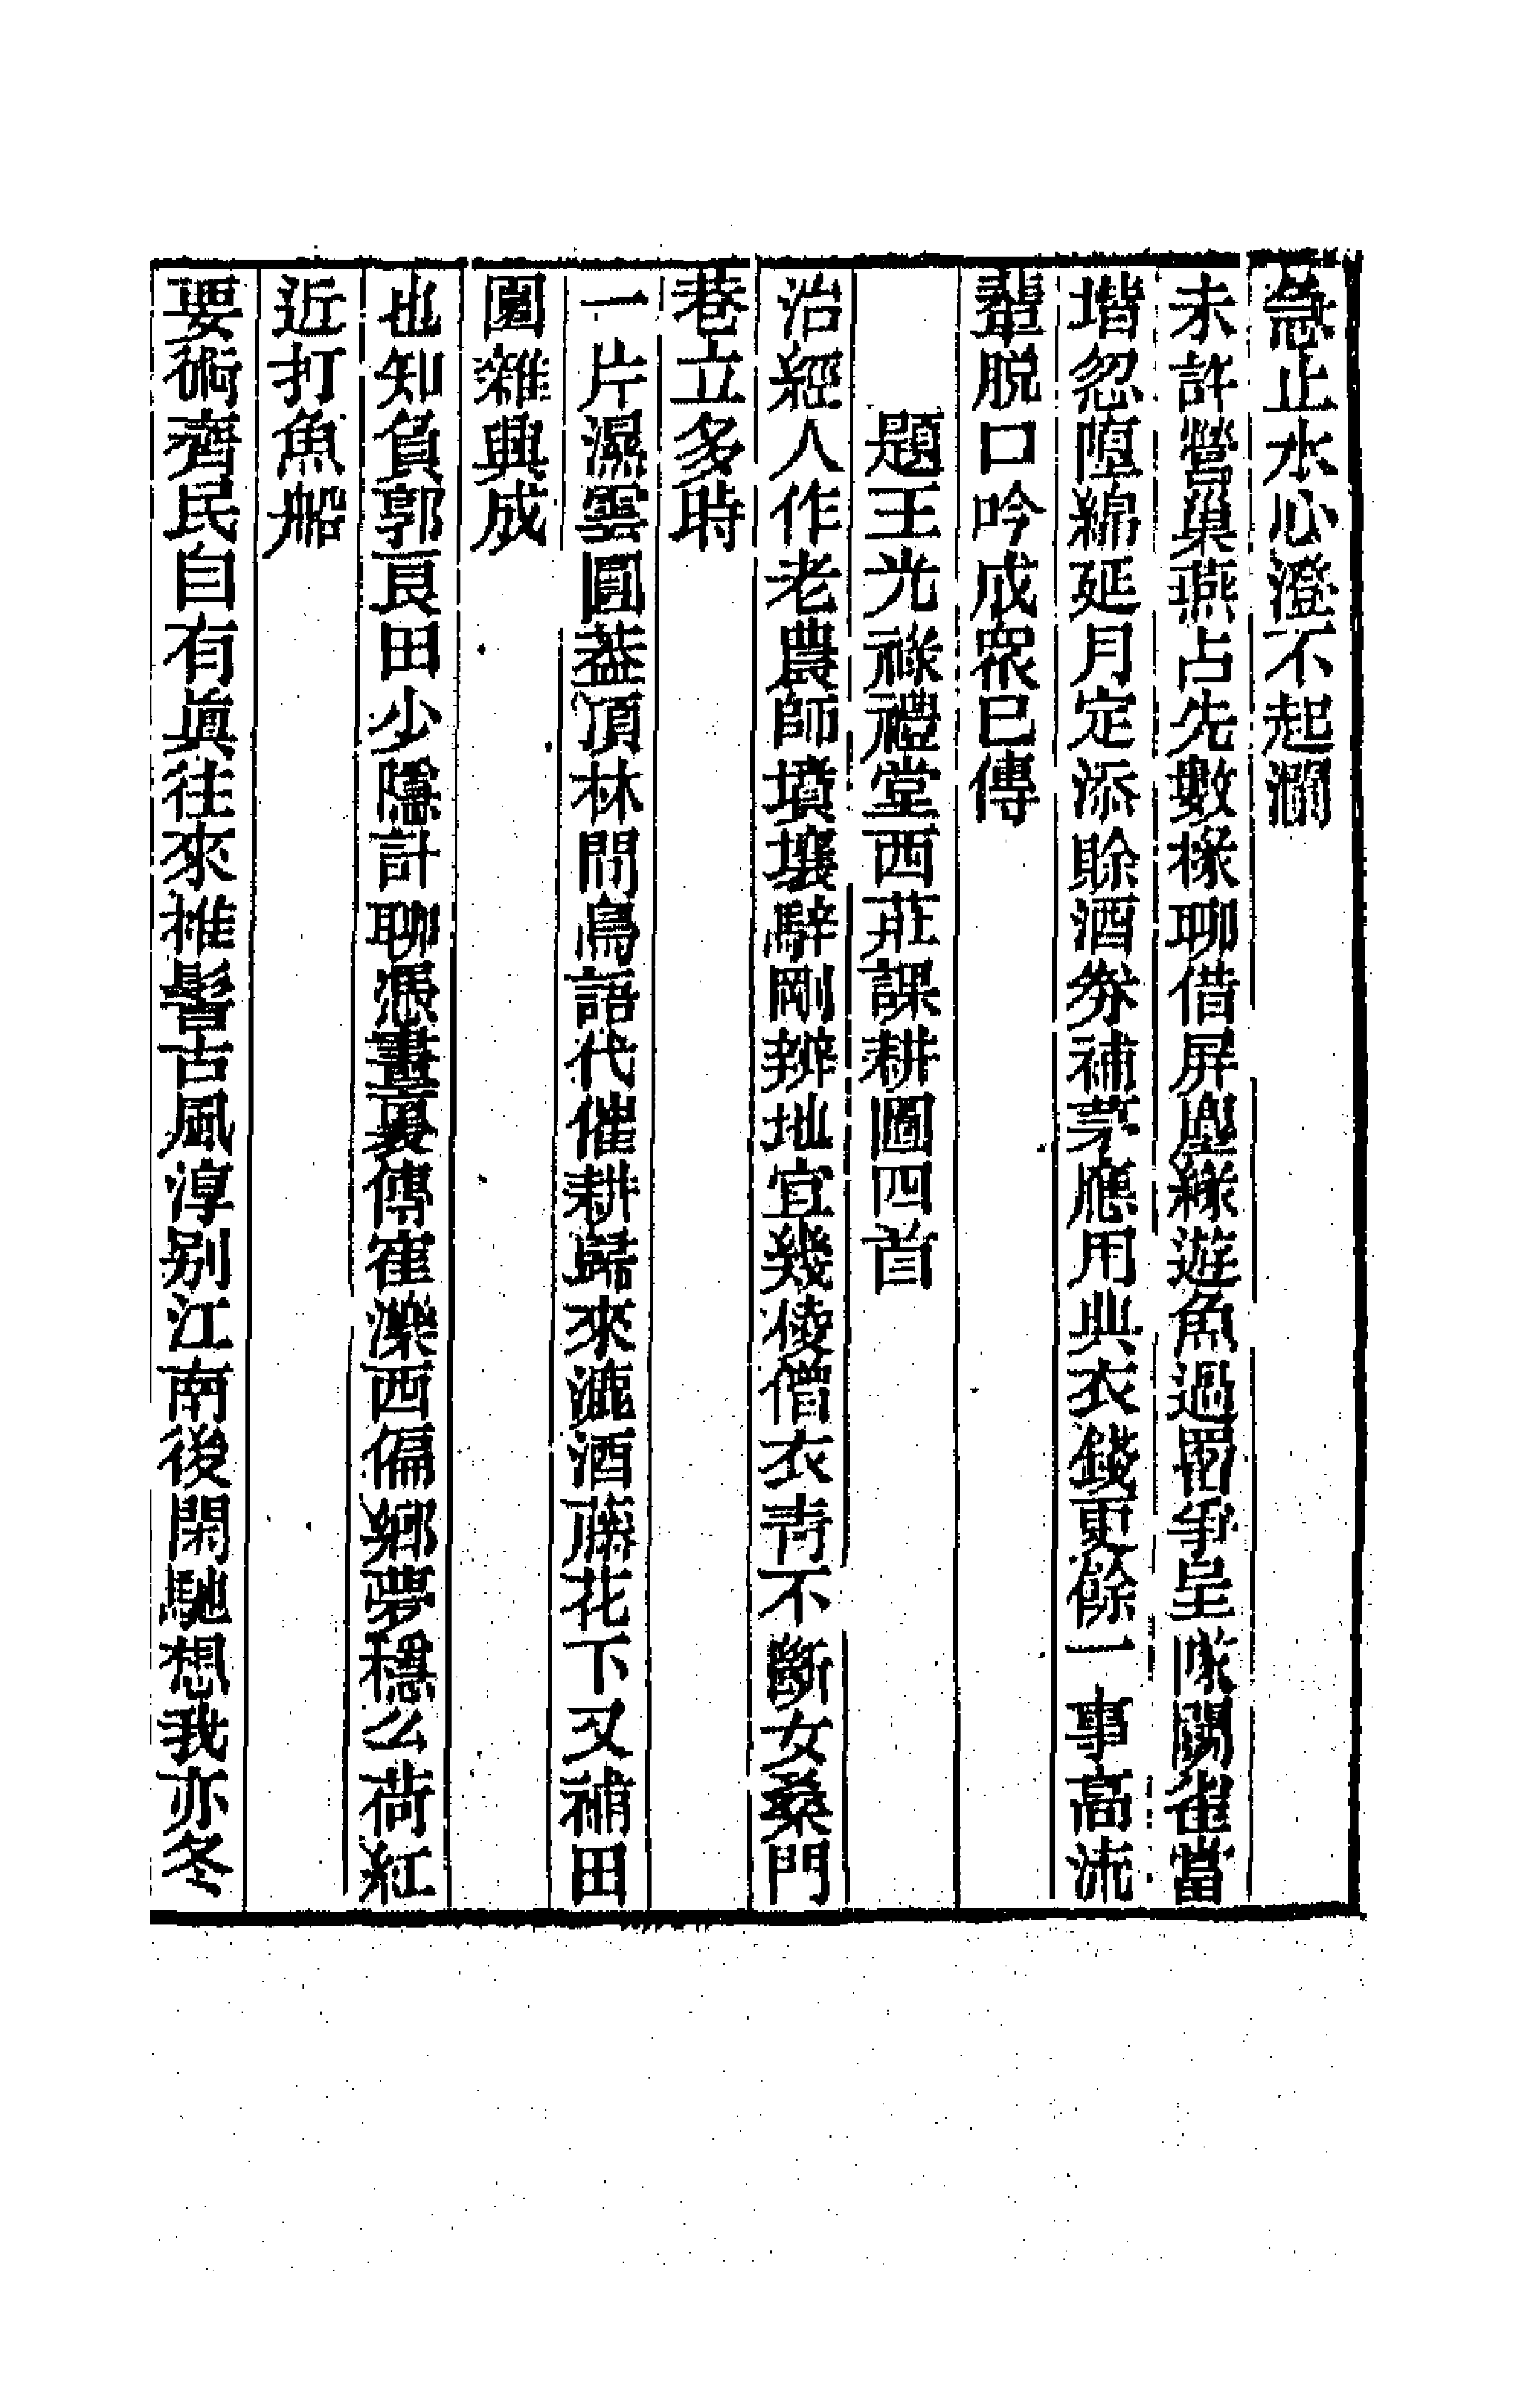 急止水心澄不起瀾
未許營巢燕占先數椽聊借屏塵緣遊魚過罶爭呈隊鬬雀當
堦忽墮綿延月定添賒酒劵補茅應用典衣錢更餘一事高流
輩脫口吟成眾已傳
題王光祿禮堂西莊課耕圖四首
治經人作老農師墳壤騂剛辨地宜幾稜僧衣青不斷女桑門
巷立多時
一片濕雲圓蓋頂林間鳥語代催耕歸來漉酒藤花下又補田
園雜興成
也知負郭良田少隱計聊憑畫裏傳寉濼西偏鄉夢穩么荷紅
近打魚船
要術齊民自有眞往來椎髻古風淳別江南後閑馳想我亦冬